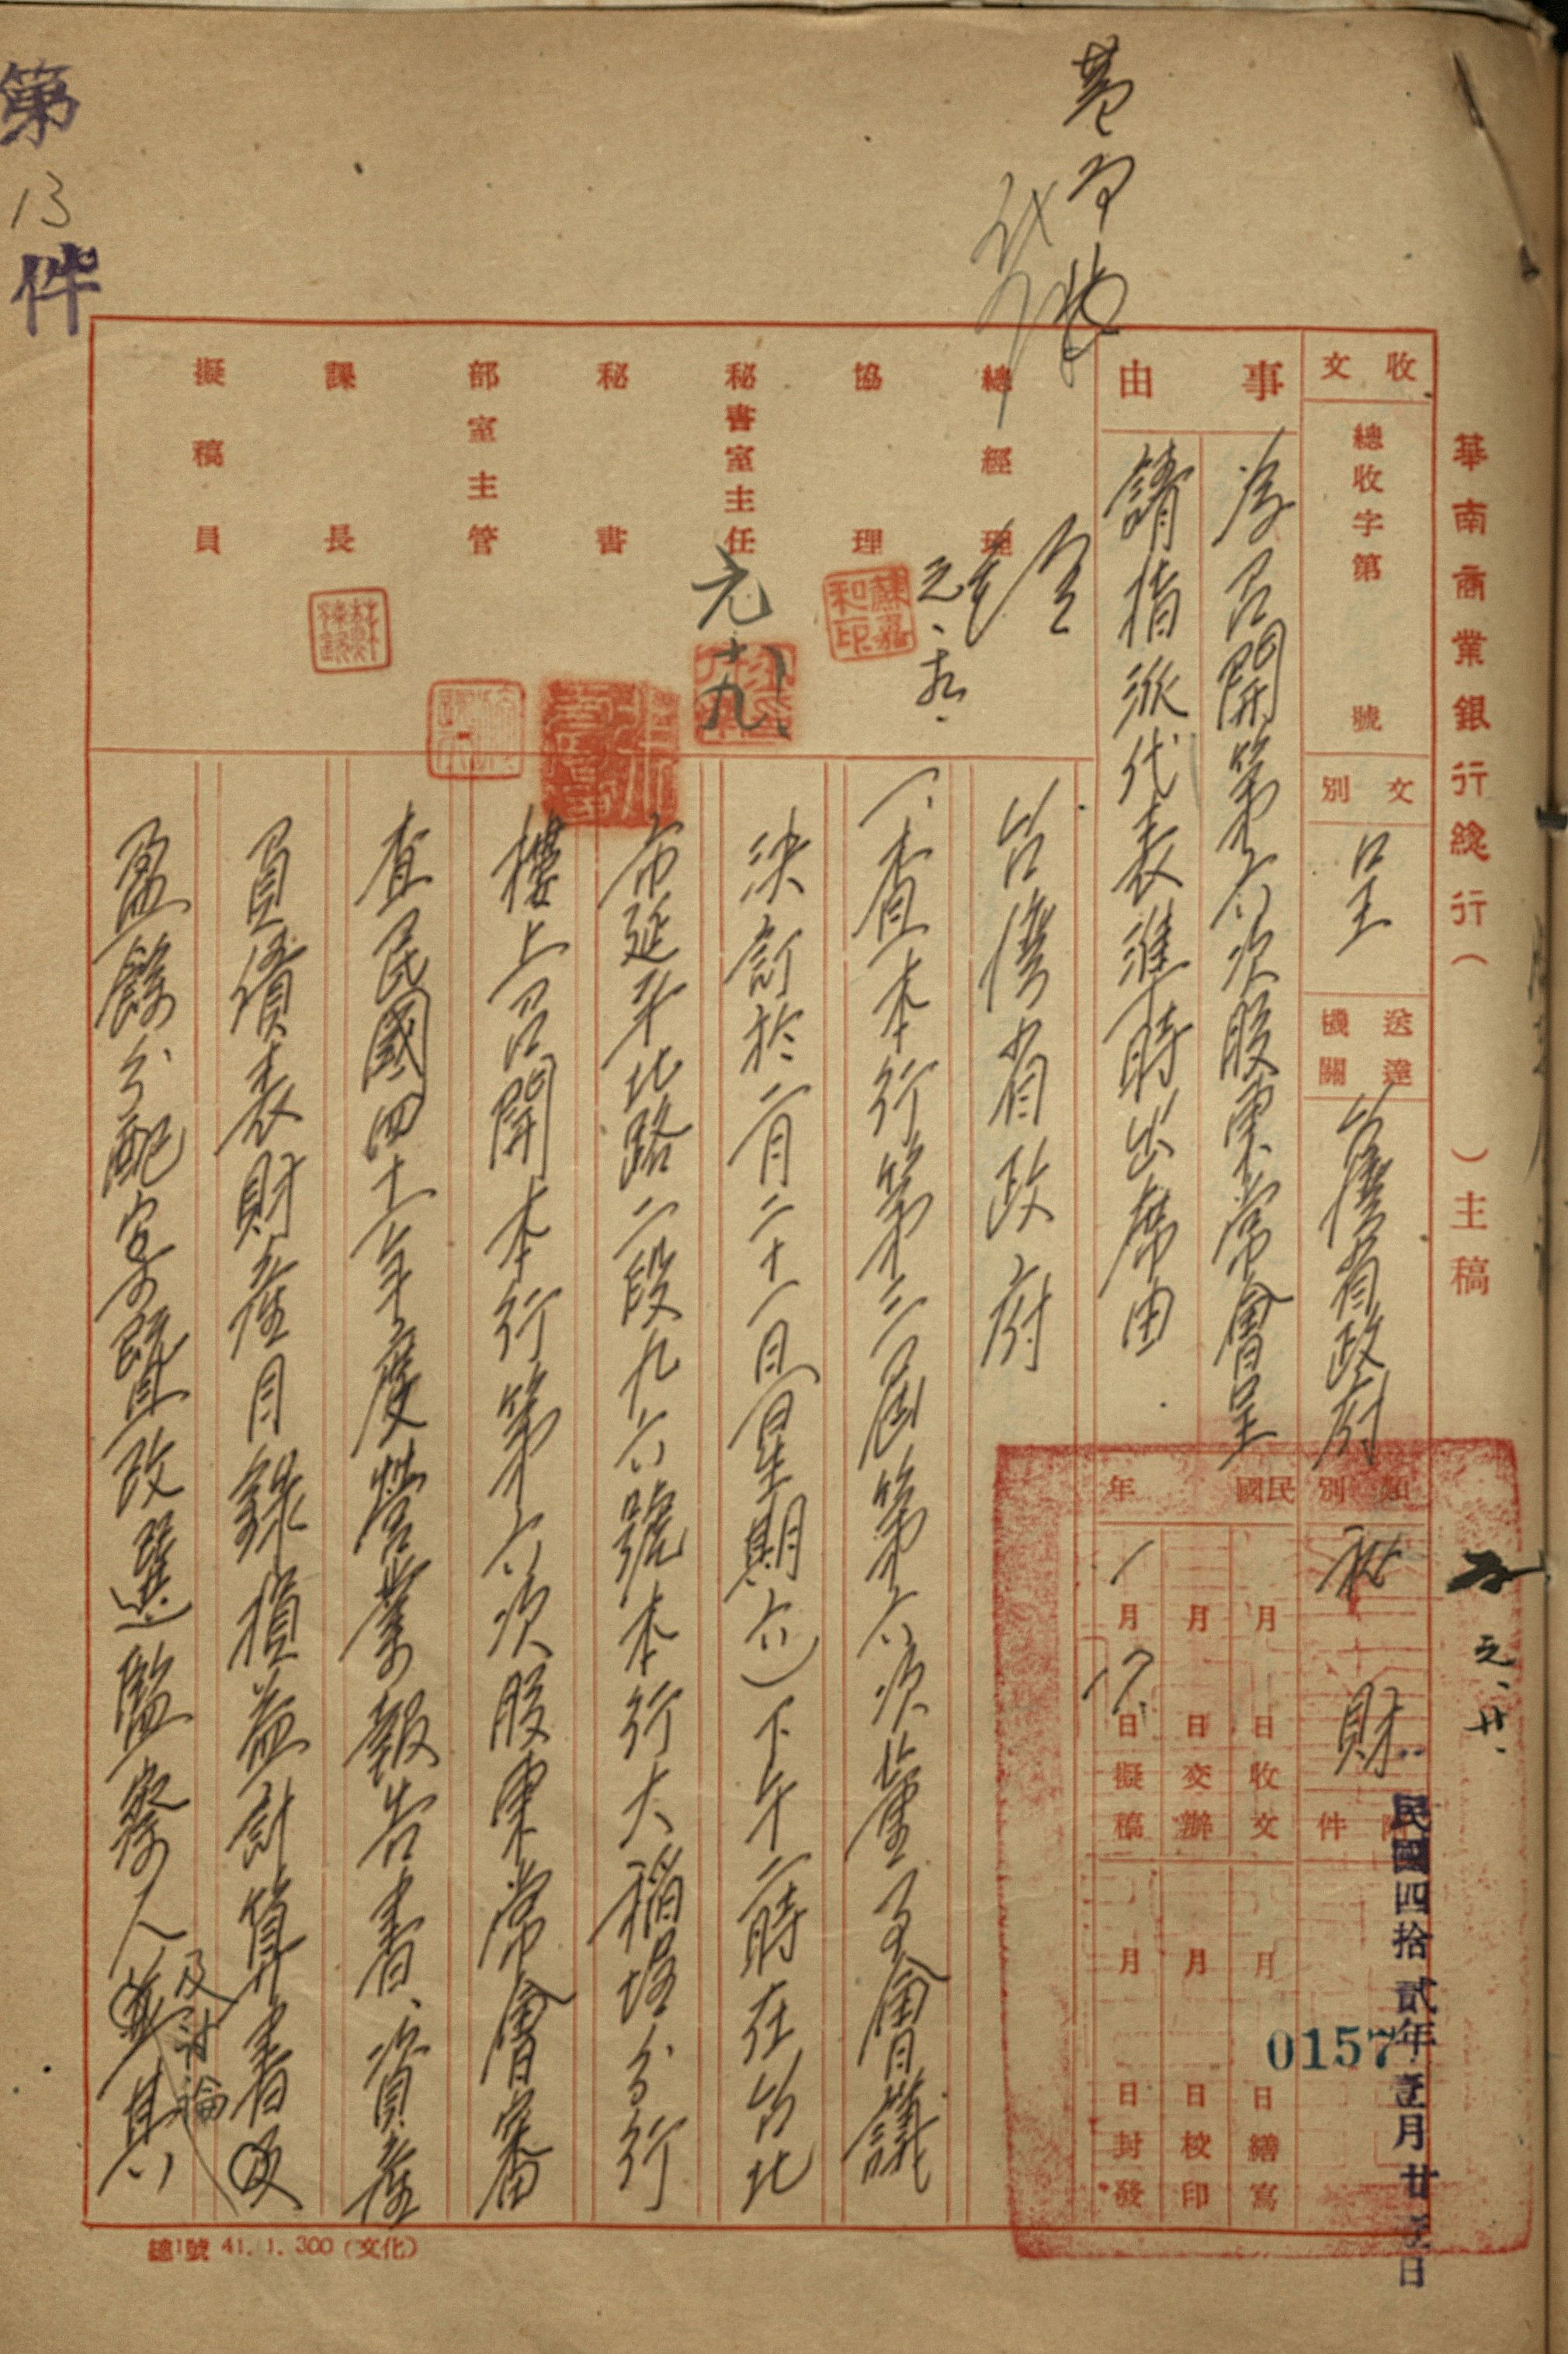 華南商業銀行總行（　　）主稿
收文
總收字第　　號
文別
呈
送達機關
台灣省政府
類別
財
附件
事由
為召開第六次股東常會呈
請指派代表準時出席由
民國　年
月　日收文
月　日交辦
一月　日擬稿
月　日繕寫
月　日校印
月　日封發
民國四拾貳年壹月廿　日
0157
元、廿、
總經理
元、
協理
蘇嘉和印
秘書室主任
元、十九、
秘書
部室主管
課長
擬稿員
台灣省政府
一、查本行第二屆第六次董事會議
決訂於二月二十一日（星期六）下午二時在台北
市延平北路二段九六號本行大稻埕分行
樓上召開本行第六次股東常會審
查民國四十一年度營業報告書、資產
負債表財產目錄損益計算書及
盈餘分配案暨改選監察人並其
及討論
第13件
總1號 41. 1. 300（文化）